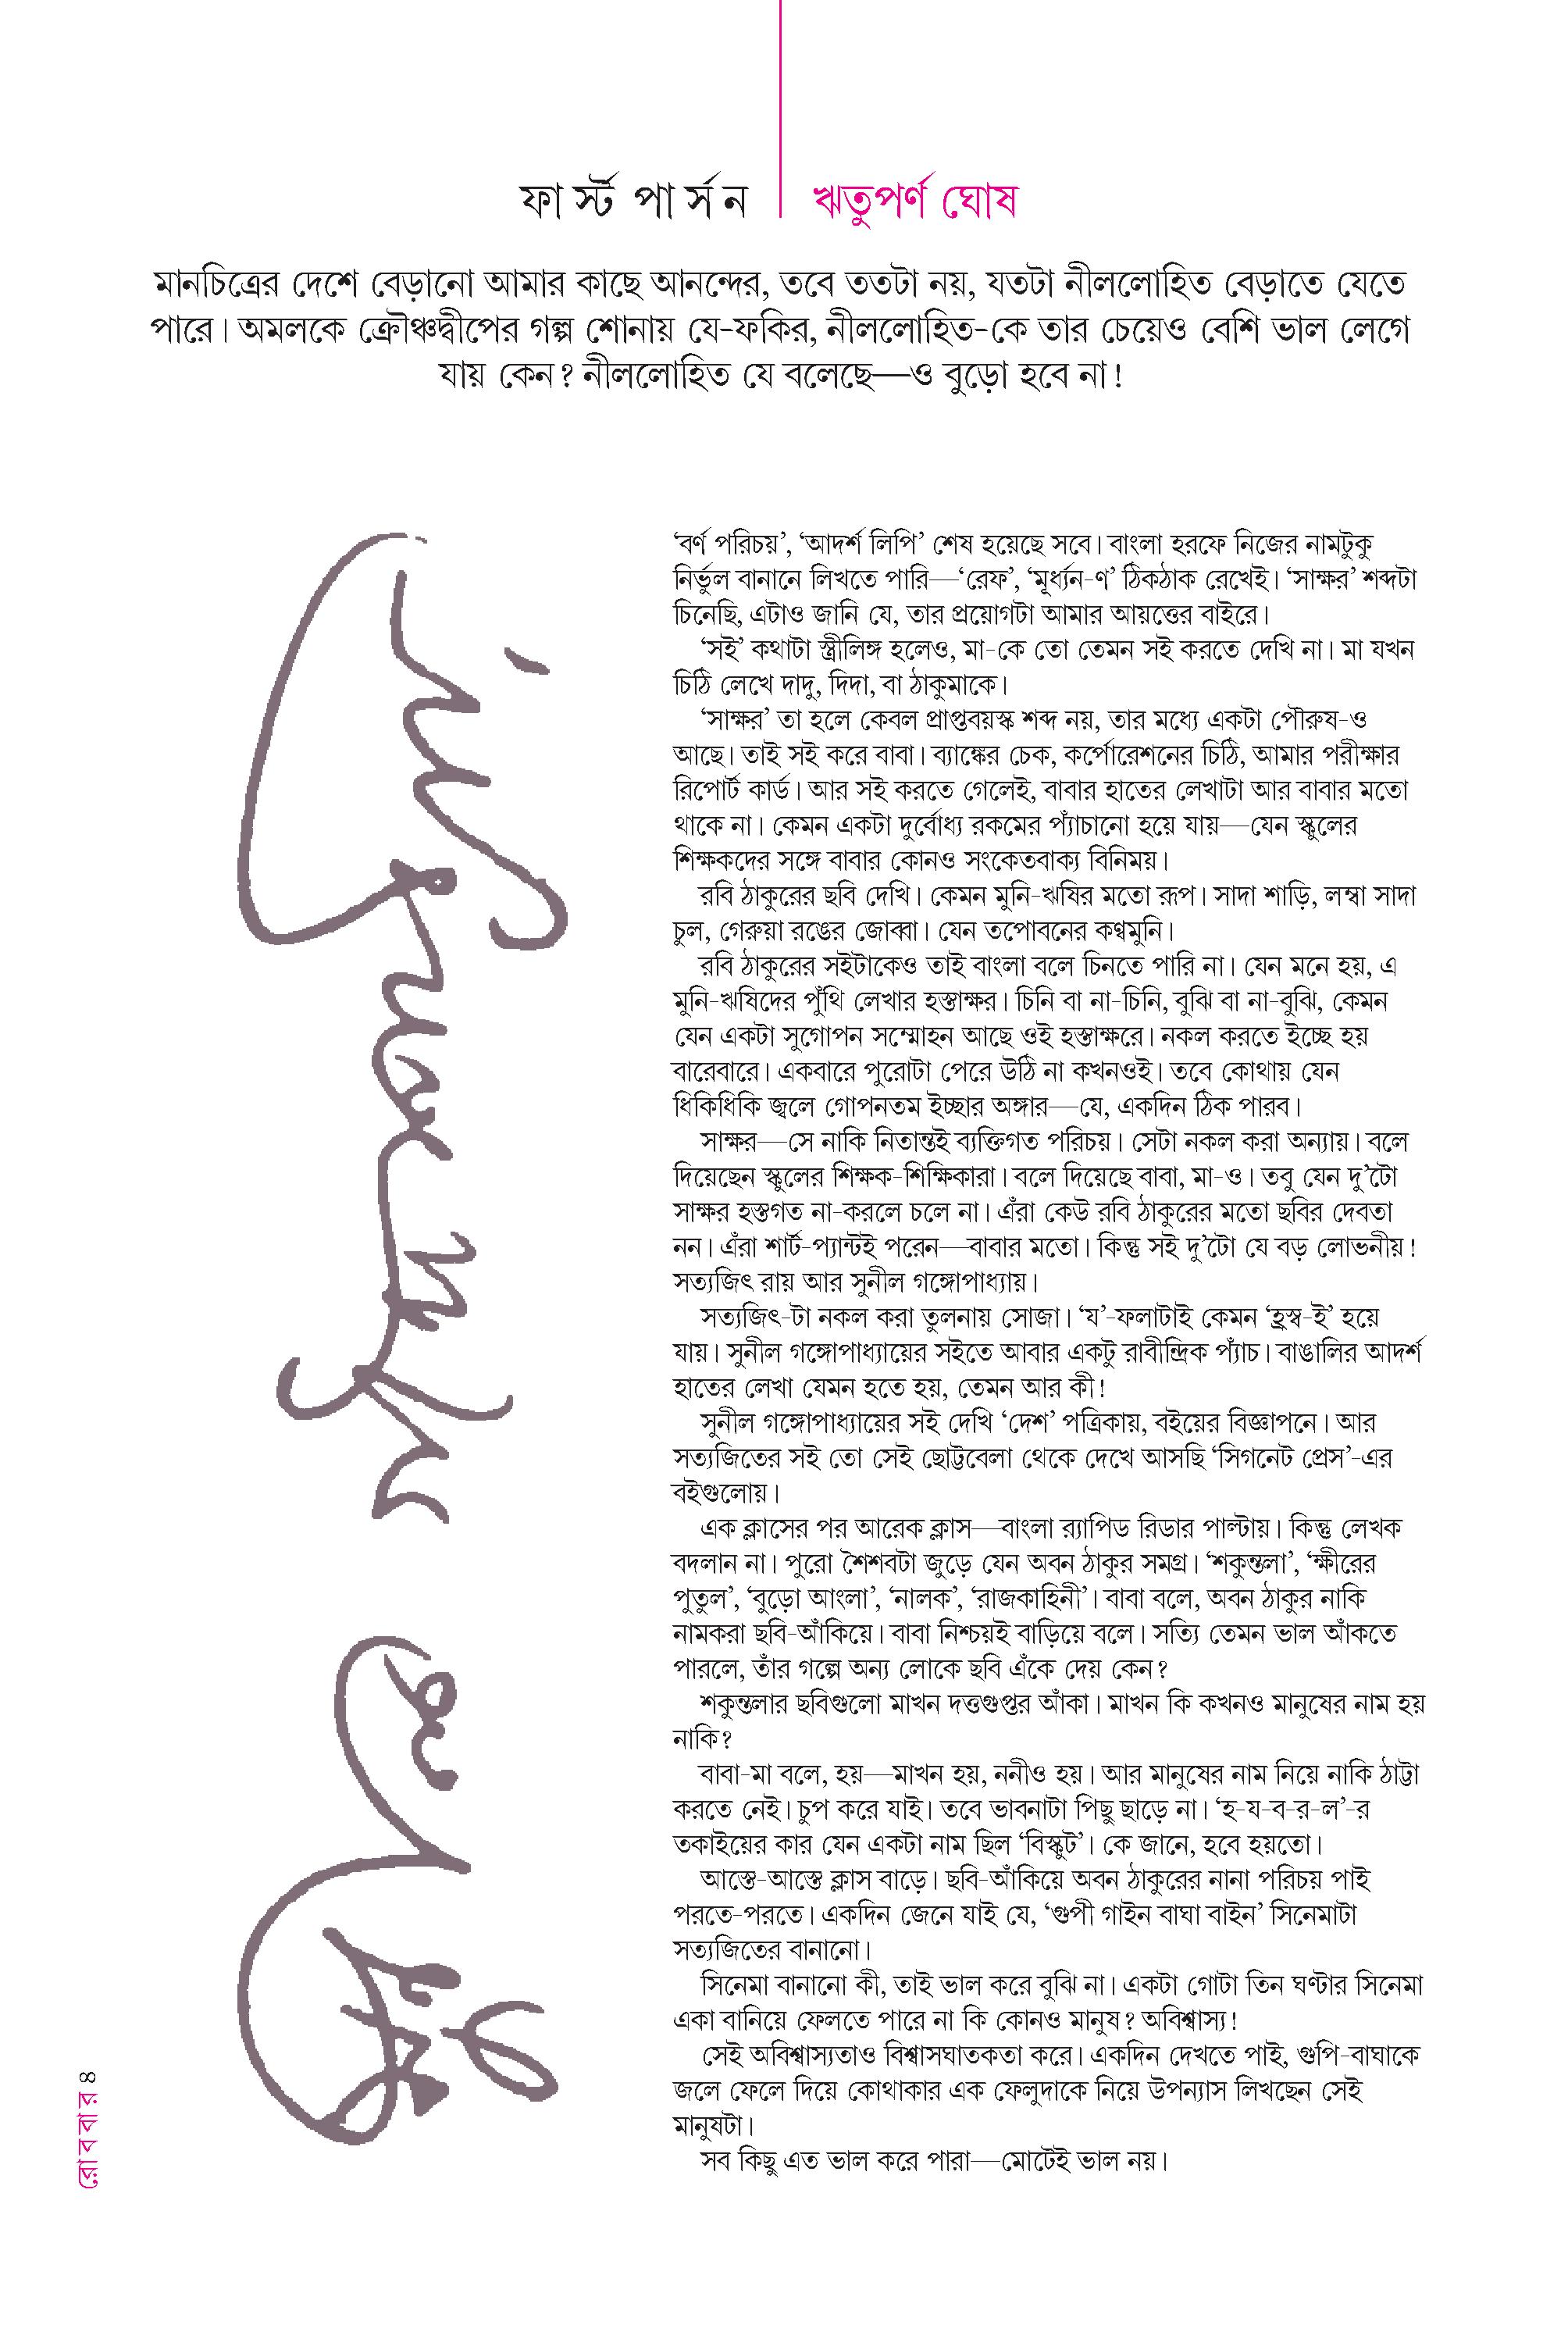 ফার্স্ট পার্সন | ঋতুপর্ণ ঘোষ
মানচিত্রের দেশে বেড়ানো আমার কাছে আনন্দের, তবে ততটা নয়, যতটা নীললোহিত বেড়াতে যেতে
পারে। অমলকে ক্রৌঞ্চদ্বীপের গল্প শোনায় যে-ফকির, নীললোহিত-কে তার চেয়েও বেশি ভাল লেগে
যায় কেন? নীললোহিত যে বলেছে—ও বুড়ো হবে না!
‘বর্ণ পরিচয়’, ‘আদর্শ লিপি’ শেষ হয়েছে সবে। বাংলা হরফে নিজের নামটুকু
নির্ভুল বানানে লিখতে পারি—‘রেফ’, ‘মূর্ধ্যন-ণ’ ঠিকঠাক রেখেই। ‘সাক্ষর’ শব্দটা
চিনেছি, এটাও জানি যে, তার প্রয়োগটা আমার আয়ত্তের বাইরে।
‘সই’ কথাটা স্ত্রীলিঙ্গ হলেও, মা-কে তো তেমন সই করতে দেখি না। মা যখন
চিঠি লেখে দাদু, দিদা, বা ঠাকুমাকে।
‘সাক্ষর’ তা হলে কেবল প্রাপ্তবয়স্ক শব্দ নয়, তার মধ্যে একটা পৌরুষ-ও
আছে। তাই সই করে বাবা। ব্যাঙ্কের চেক, কর্পোরেশনের চিঠি, আমার পরীক্ষার
রিপোর্ট কার্ড। আর সই করতে গেলেই, বাবার হাতের লেখাটা আর বাবার মতো
থাকে না। কেমন একটা দুর্বোধ্য রকমের প্যাঁচানো হয়ে যায়—যেন স্কুলের
শিক্ষকদের সঙ্গে বাবার কোনও সংকেতবাক্য বিনিময়।
রবি ঠাকুরের ছবি দেখি। কেমন মুনি-ঋষির মতো রূপ। সাদা শাড়ি, লম্বা সাদা
চুল, গেরুয়া রঙের জোব্বা। যেন তপোবনের কণ্বমুনি।
রবি ঠাকুরের সইটাকেও তাই বাংলা বলে চিনতে পারি না। যেন মনে হয়, এ
মুনি-ঋষিদের পুঁথি লেখার হস্তাক্ষর। চিনি বা না-চিনি, বুঝি বা না-বুঝি, কেমন
যেন একটা সুগোপন সম্মোহন আছে ওই হস্তাক্ষরে। নকল করতে ইচ্ছে হয়
বারেবারে। একবারে পুরোটা পেরে উঠি না কখনওই। তবে কোথায় যেন
ধিকিধিকি জ্বলে গোপনতম ইচ্ছার অঙ্গার—যে, একদিন ঠিক পারব।
সাক্ষর—সে নাকি নিতান্তই ব্যক্তিগত পরিচয়। সেটা নকল করা অন্যায়। বলে
দিয়েছেন স্কুলের শিক্ষক-শিক্ষিকারা। বলে দিয়েছে বাবা, মা-ও। তবু যেন দু’টো
সাক্ষর হস্তগত না-করলে চলে না। এঁরা কেউ রবি ঠাকুরের মতো ছবির দেবতা
নন। এঁরা শার্ট-প্যান্টই পরেন—বাবার মতো। কিন্তু সই দু’টো যে বড় লোভনীয়!
সত্যজিৎ রায় আর সুনীল গঙ্গোপাধ্যায়।
সত্যজিৎ-টা নকল করা তুলনায় সোজা। ‘য’-ফলাটাই কেমন ‘হ্রস্ব-ই’ হয়ে
যায়। সুনীল গঙ্গোপাধ্যায়ের সইতে আবার একটু রাবীন্দ্রিক প্যাঁচ। বাঙালির আদর্শ
হাতের লেখা যেমন হতে হয়, তেমন আর কী!
সুনীল গঙ্গোপাধ্যায়ের সই দেখি ‘দেশ’ পত্রিকায়, বইয়ের বিজ্ঞাপনে। আর
সত্যজিতের সই তো সেই ছোট্টবেলা থেকে দেখে আসছি ‘সিগনেট প্রেস’-এর
বইগুলোয়।
এক ক্লাসের পর আরেক ক্লাস—বাংলা র‍্যাপিড রিডার পাল্টায়। কিন্তু লেখক
বদলান না। পুরো শৈশবটা জুড়ে যেন অবন ঠাকুর সমগ্র। ‘শকুন্তলা’, ‘ক্ষীরের
পুতুল’, ‘বুড়ো আংলা’, ‘নালক’, ‘রাজকাহিনী’। বাবা বলে, অবন ঠাকুর নাকি
নামকরা ছবি-আঁকিয়ে। বাবা নিশ্চয়ই বাড়িয়ে বলে। সত্যি তেমন ভাল আঁকতে
পারলে, তাঁর গল্পে অন্য লোকে ছবি এঁকে দেয় কেন?
শকুন্তলার ছবিগুলো মাখন দত্তগুপ্তর আঁকা। মাখন কি কখনও মানুষের নাম হয়
নাকি?
বাবা-মা বলে, হয়—মাখন হয়, ননীও হয়। আর মানুষের নাম নিয়ে নাকি ঠাট্টা
করতে নেই। চুপ করে যাই। তবে ভাবনাটা পিছু ছাড়ে না। ‘হ-য-ব-র-ল’-র
তকাইয়ের কার যেন একটা নাম ছিল ‘বিস্কুট’। কে জানে, হবে হয়তো।
আস্তে-আস্তে ক্লাস বাড়ে। ছবি-আঁকিয়ে অবন ঠাকুরের নানা পরিচয় পাই
পরতে-পরতে। একদিন জেনে যাই যে, ‘গুপী গাইন বাঘা বাইন’ সিনেমাটা
সত্যজিতের বানানো।
সিনেমা বানানো কী, তাই ভাল করে বুঝি না। একটা গোটা তিন ঘণ্টার সিনেমা
একা বানিয়ে ফেলতে পারে না কি কোনও মানুষ? অবিশ্বাস্য!
সেই অবিশ্বাস্যতাও বিশ্বাসঘাতকতা করে। একদিন দেখতে পাই, গুপি-বাঘাকে
জলে ফেলে দিয়ে কোথাকার এক ফেলুদাকে নিয়ে উপন্যাস লিখছেন সেই
মানুষটা।
সব কিছু এত ভাল করে পারা—মোটেই ভাল নয়।
সুনীল গঙ্গোপাধ্যায়
রোববার ৪